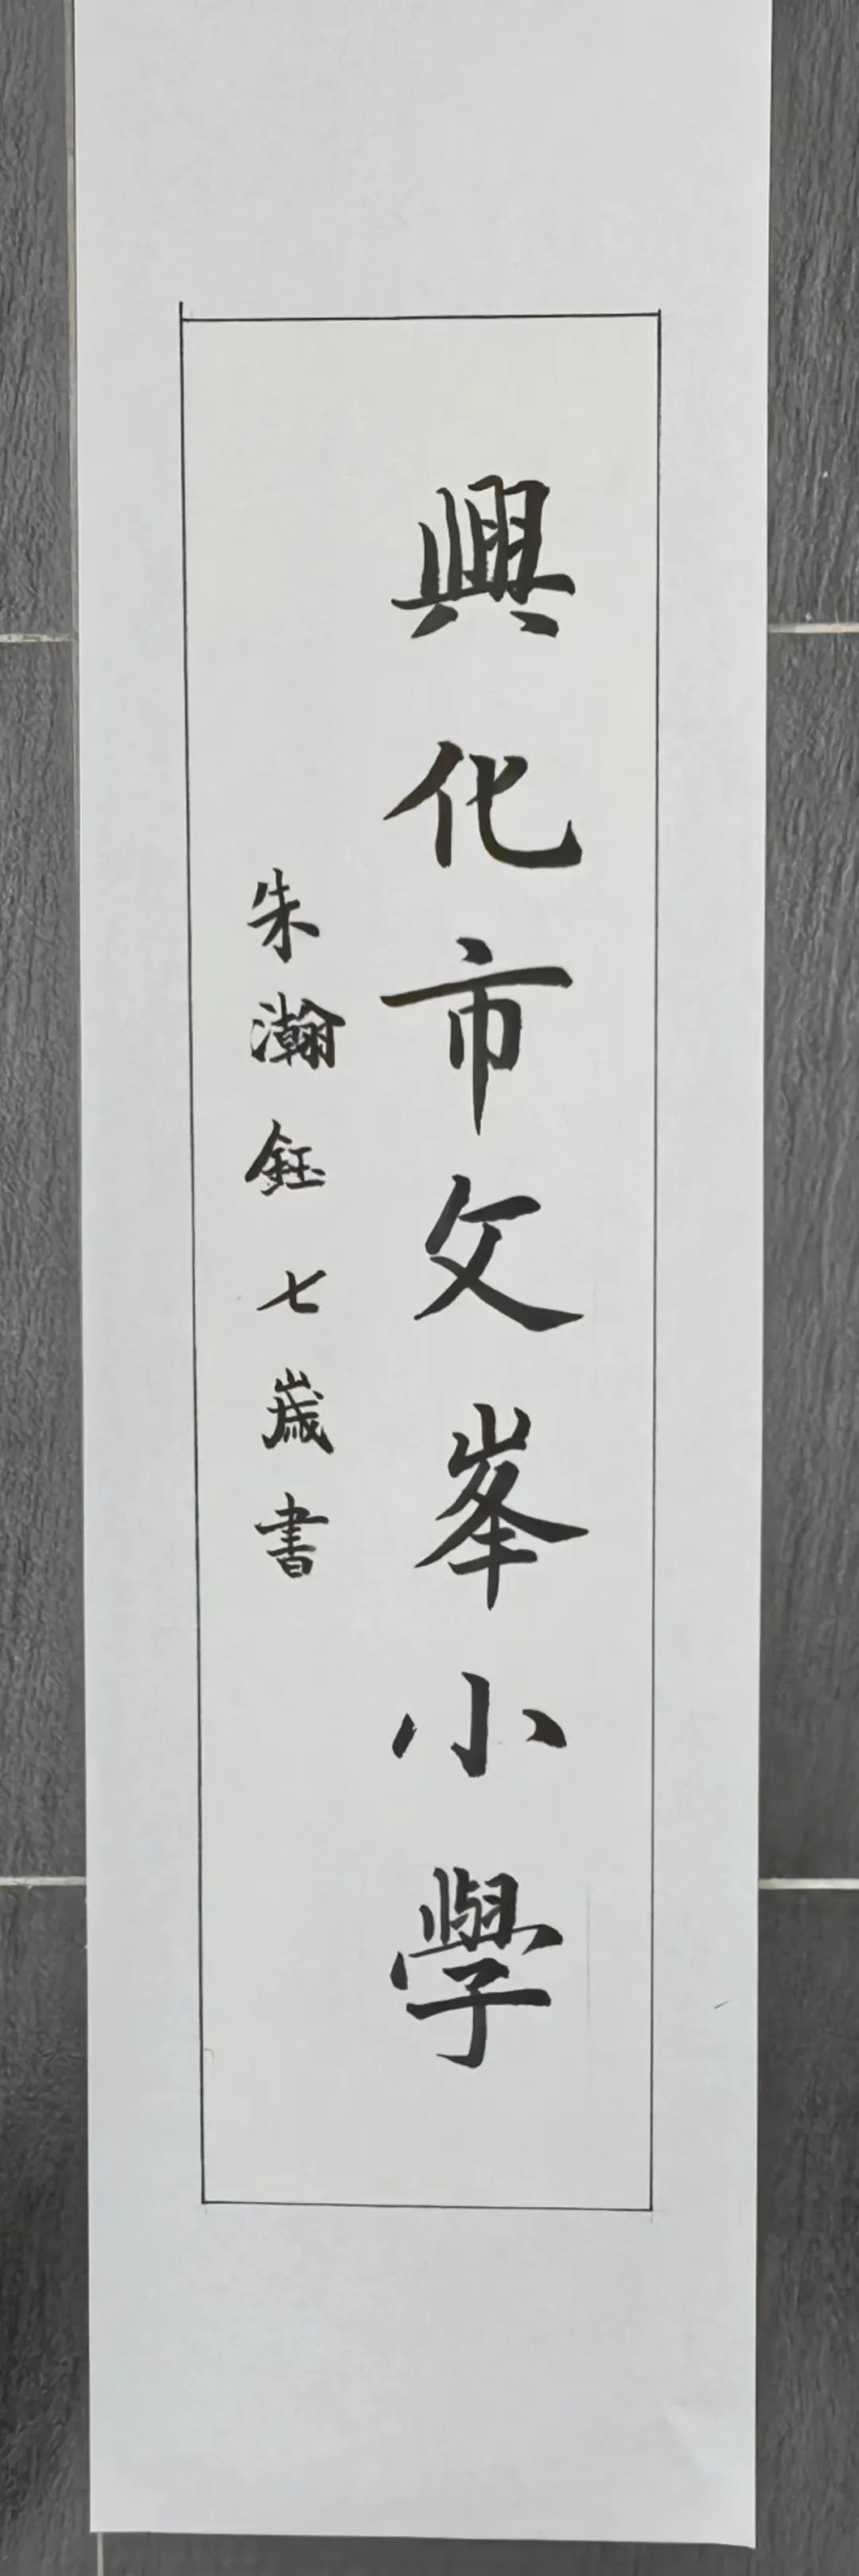 興化市文峯小學
朱瀚鈺七歲書